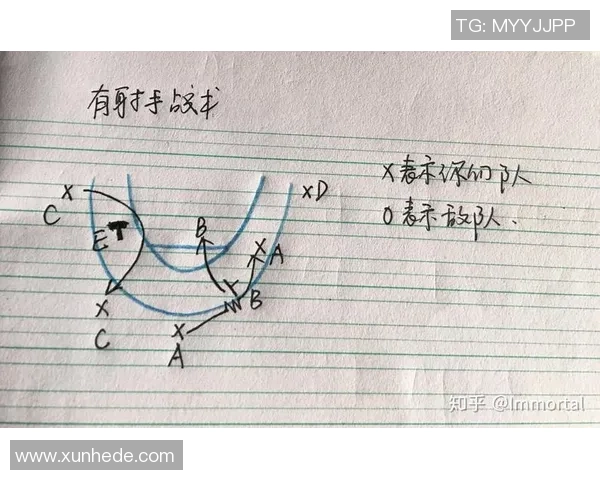 TG: MYYJJPP
有射手战术
X表示你们队
O表示敌队.
X
C
E T
B
X A
X D
X
C
B
X
A
知乎 @Immortal
www.xunhede.com